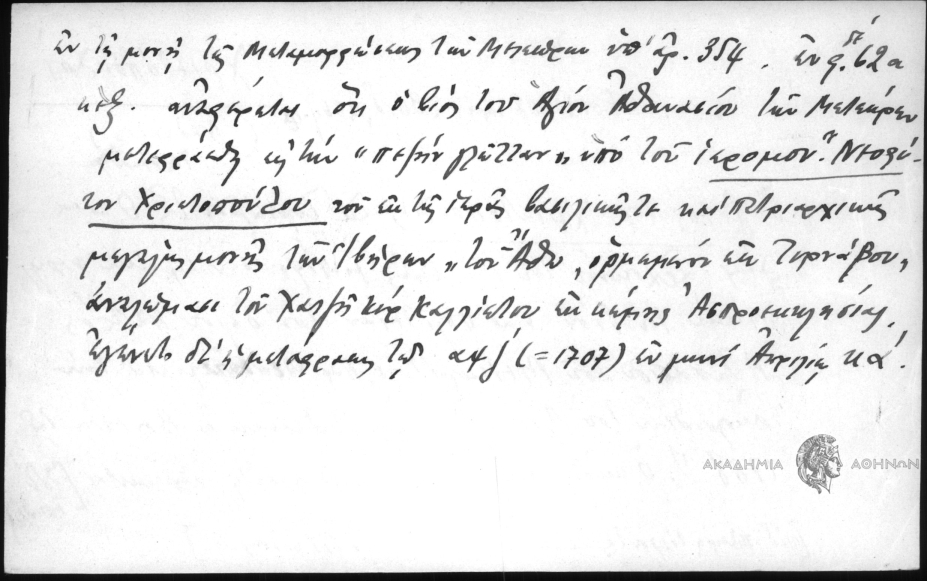 ἐν τῇ μονῇ τῆς Μεταμορφώσεως τῶν Μετεώρων ὑπ' ἀρ. 354. ἐν φ. 62α
κεξ. ἀναφέρεται ὅτι ὁ βίος τοῦ Ἁγίου Ἀθανασίου τῶν Μετεώρων
μετεφράσθη εἰς τὴν "πεζὴν γλῶτταν" ὑπὸ τοῦ ἱερομον. Νεοφύ-
του Χριστοπούλου τοῦ ἐκ τῆς ἱερᾶς βασιλικῆς τε καὶ πατριαρχικῆς
μεγάλης μονῆς τῶν Ἰβήρων "τοῦ Ἄθω, ὁρμωμένου ἐκ Τυρνάβου"
ἀναλώμασι τοῦ Χατζῆ κὺρ Καλλίστου ἐκ κώμης Ἀσπροεκκλησίας,
ἐγένετο δὲ ἡ μετάφρασις τῷ αψζ (=1707) ἐν μηνὶ Ἀπριλίῳ κά.
ΑΚΑΔΗΜΙΑ ΑΘΗΝΩΝ